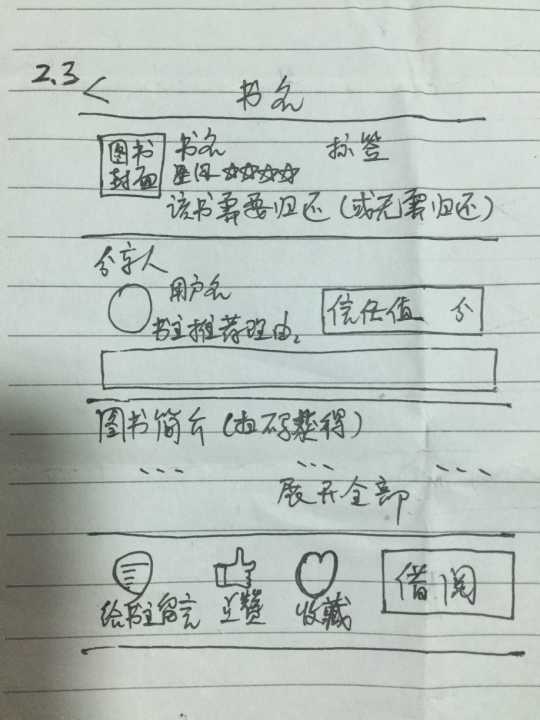 2.3 < 书名
图书 书名 标签
封面 星级 ☆☆☆☆
该书需要归还（或无需归还）
分享人
用户名
信任值 分
书主推荐理由。
图书简介（扫码获得）
... ... ...
展开全部
给书主留言 点赞 收藏 借阅